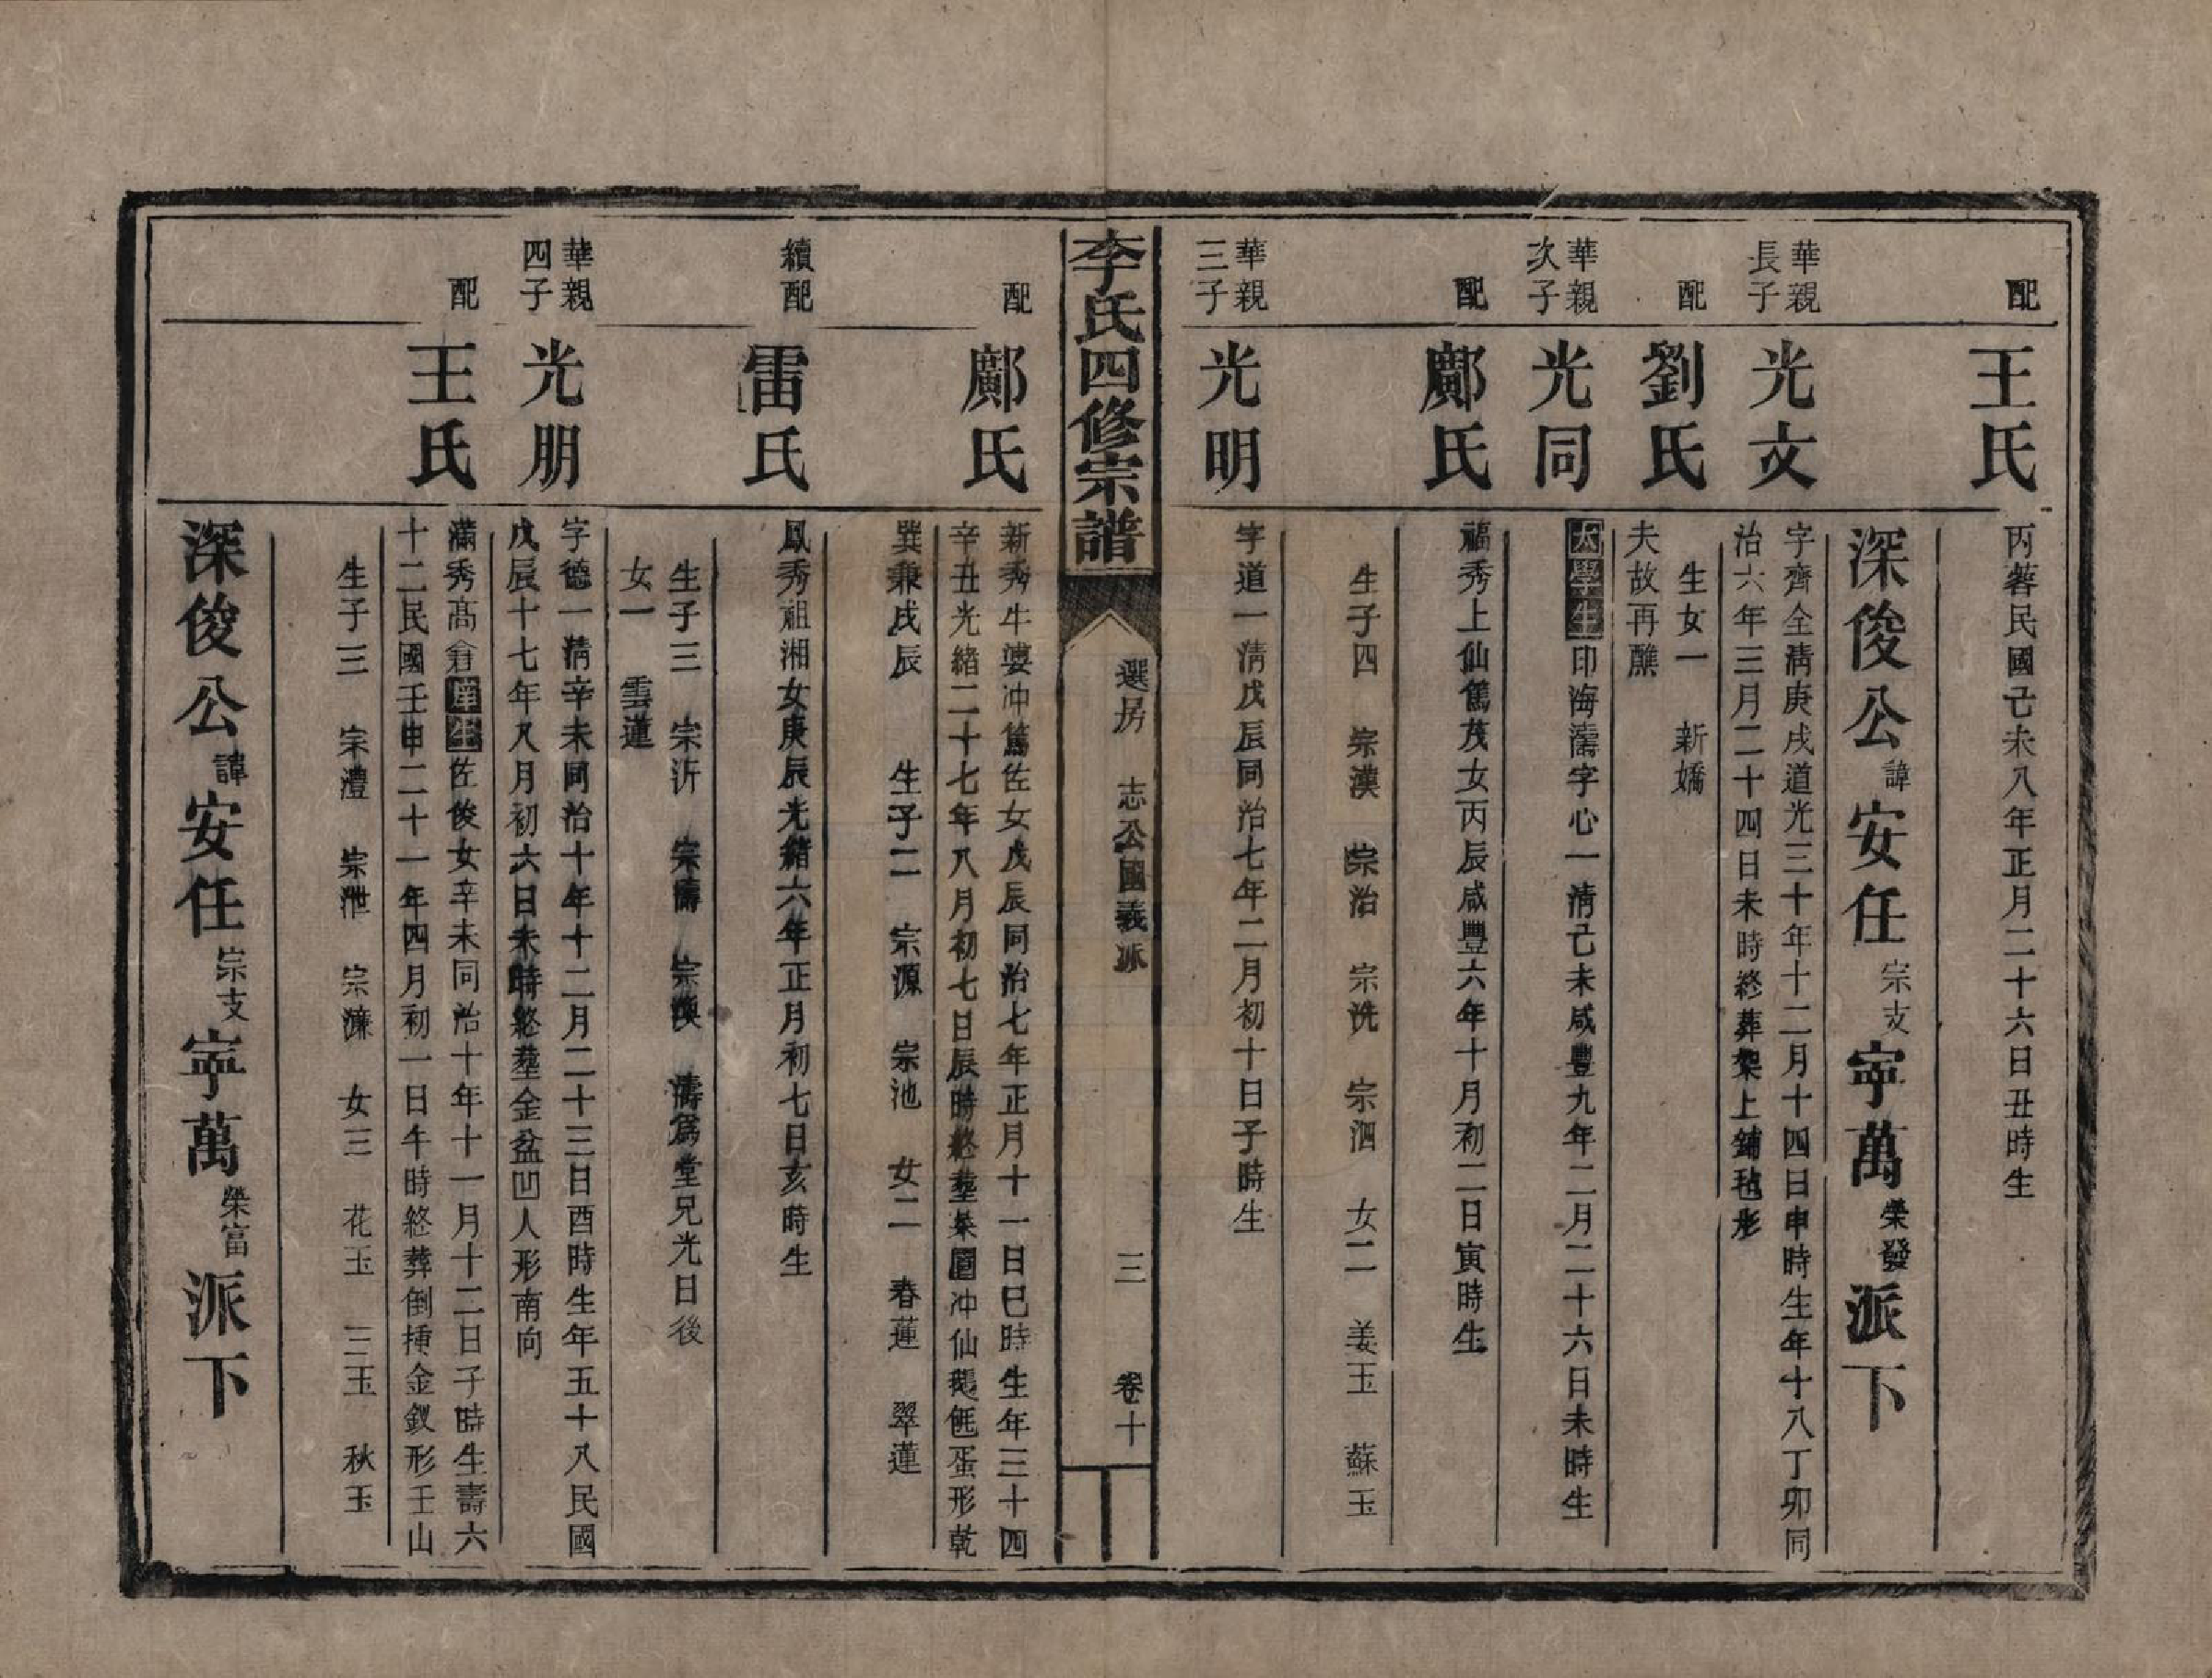 配
王氏
丙蓉民國己未八年正月二十六日丑時生
深俊公諱安任宗支寧萬榮發派下
華親長子
光文
字齊全淸庚戌道光三十年十二月十四日申時生年十八丁卯同
治六年三月二十四日未時終葬槃上鋪毡形
配
劉氏
生女一 新嬌
夫故再醮
華親次子
光同
大學生印海濤字心一淸己未咸豐九年二月二十六日未時生
配
鄺氏
福秀上仙篤茂女丙辰咸豐六年十月初二日寅時生
生子四 宗漢 宗治 宗洗 宗泗 女二 姜玉 蘇玉
華親三子
光明
字道一淸戊辰同治七年二月初十日子時生
李氏四修宗譜
選房 志公國義派
三
卷十
配
鄺氏
新秀牛婆冲篤佐女戊辰同治七年正月十一日巳時生年三十四
辛丑光緒二十七年八月初七日辰時終塟菜園冲仙蛋形乾
巽兼戌辰 生子二 宗源 宗池 女二 春蓮 翠蓮
續配
雷氏
鳳秀祖湘女庚辰光緒六年正月初七日亥時生
生子三 宗沂 宗濤 宗漢 濤爲堂兄光日後
女一 雲蓮
華親四子
光朋
字德一淸辛未同治十年十二月二十三日酉時生年五十八民國
戊辰十七年八月初六日未時終塟金盆凹人形南向
配
王氏
滿秀髙倉庠生佐俊女辛未同治十年十一月十二日子時生壽六
十二民國壬申二十一年四月初一日午時終葬倒揷金釵形壬山
生子三 宗澧 宗泄 宗濂 女三 花玉 三玉 秋玉
深俊公諱安任宗支寧萬榮富派下